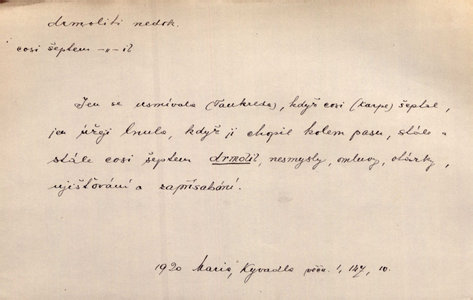 drmoliti nedok.
cosi šeptem -o-il
Jen se usmívala (Tankreda), když cosi (Karpe) šeptal,
jen úžeji lnula, když ji chopil kolem pasu, stále
stále cosi šeptem drmolil, nesmysly, omluvy, otázky,
ujišťování a zapřísahání.
1920 Maria, Kyvadlo 1, 147, 10.